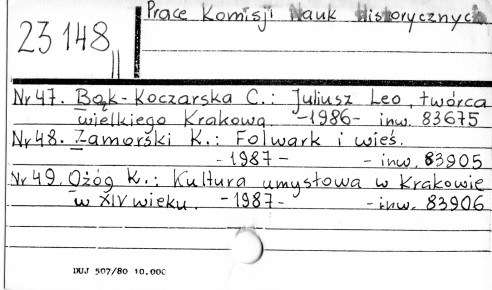 Prace Komisji Nauk Historycznych
23 148
II
Nr 47. Bąk-Koczarska C.: Juliusz Leo, twórca
wielkiego Krakowa. -1986- inw. 83675
Nr 48. Zamorski K.: Folwark i wieś.
-1987- - inw. 83905
Nr 49. Ożóg K.: Kultura umysłowa w Krakowie
w XIV wieku. -1987- - inw. 83906
DUJ 507/80 10.000